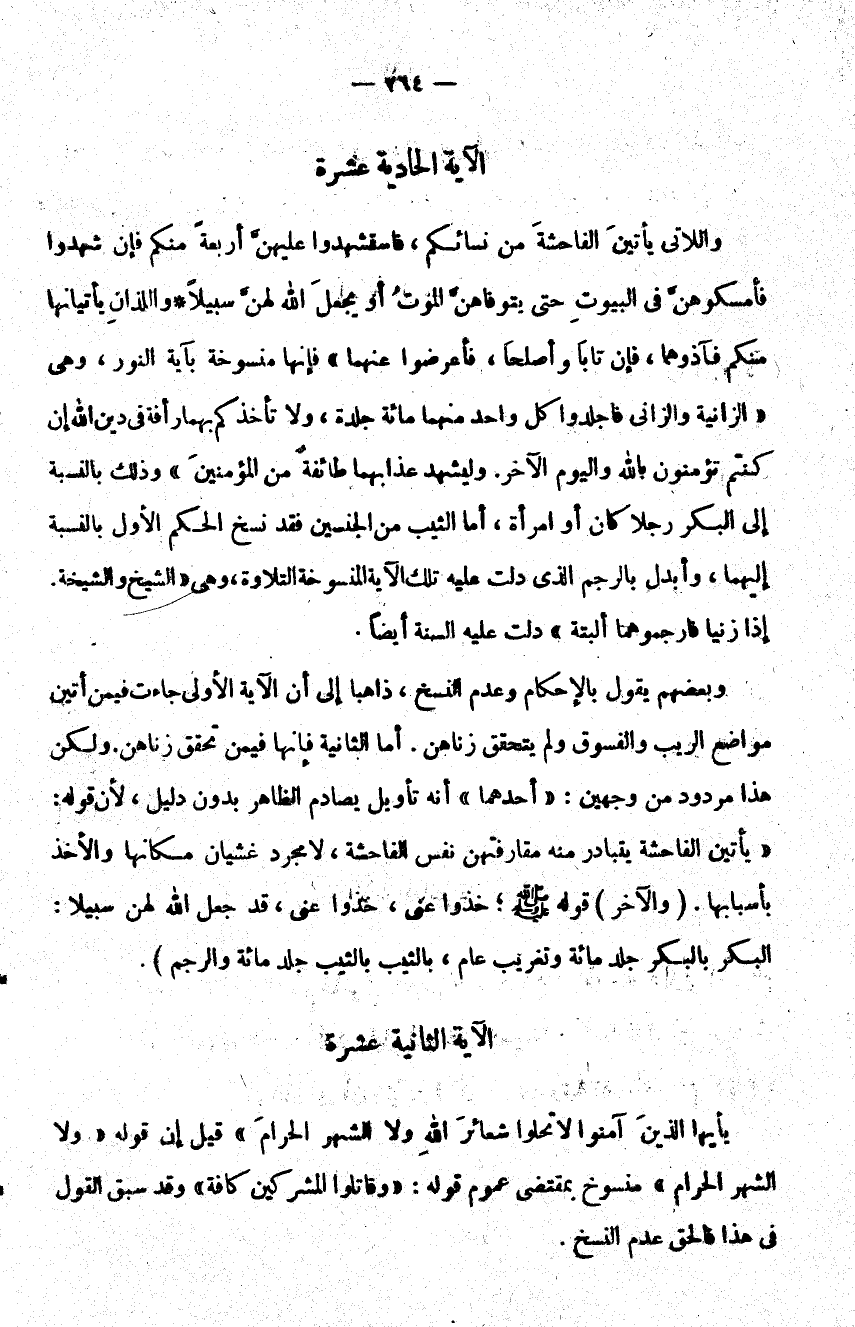 — ٣٦٤ —
الآية الحادية عشرة
واللاتى يأتينَ الفاحشةَ من نسائكم ، فاستشهدوا عليهنَّ أربعةً منكم فإن شهدوا
فأمسكوهنَّ فى البيوتِ حتى يتوفاهنَّ الموتُ أو يجعلَ الله لهنَّ سبيلاً*واللذانِ يأتيانها
منكم فآذوهما ، فإن تابا وأصلحا ، فأعرضوا عنهما » فإنها منسوخة بآية النور ، وهى
« الزانية والزانى فاجلدوا كل واحد منهما مائة جلدة ، ولا تأخذكم بهما رأفة فى دين الله إن
كنتم تؤمنون بالله واليوم الآخر . وليشهد عذابهما طائفةٌ من المؤمنينَ » وذلك بالنسبة
إلى البكر رجلا كان أو امرأة ، أما الثيب من الجنسين فقد نسخ الحكم الأول بالنسبة
إليهما ، وأبدل بالرجم الذى دلت عليه تلك الآية المنسوخة التلاوة ، وهى « الشيخ والشيخة .
إذا زنيا فارجموهما ألبتة » دلت عليه السنة أيضاً .
وبعضهم يقول بالإحكام وعدم النسخ ، ذاهبا إلى أن الآية الأولى جاءت فيمن أتين
مواضع الريب والفسوق ولم يتحقق زناهن . أما الثانية فإنها فيمن تحقق زناهن . ولكن
هذا مردود من وجهين : « أحدهما » أنه تأويل يصادم الظاهر بدون دليل ، لأن قوله :
« يأتين الفاحشة يتبادر منه مقارفتهن نفس الفاحشة ، لا مجرد غشيان مكانها والأخذ
بأسبابها . ( والآخر ) قوله ﷺ : خذوا عنى ، خذوا عنى ، قد جعل الله لهن سبيلا :
البكر بالبكر جلد مائة وتغريب عام ، بالثيب بالثيب جلد مائة والرجم ) .
الآية الثانية عشرة
يأيها الذينَ آمنوا لا تحلوا شعائرَ اللهِ ولا الشهر الحرامَ » قيل إن قوله « ولا
الشهر الحرام » منسوخ بمقتضى عموم قوله : « وقاتلوا المشركين كافة » وقد سبق القول
فى هذا فالحق عدم النسخ .